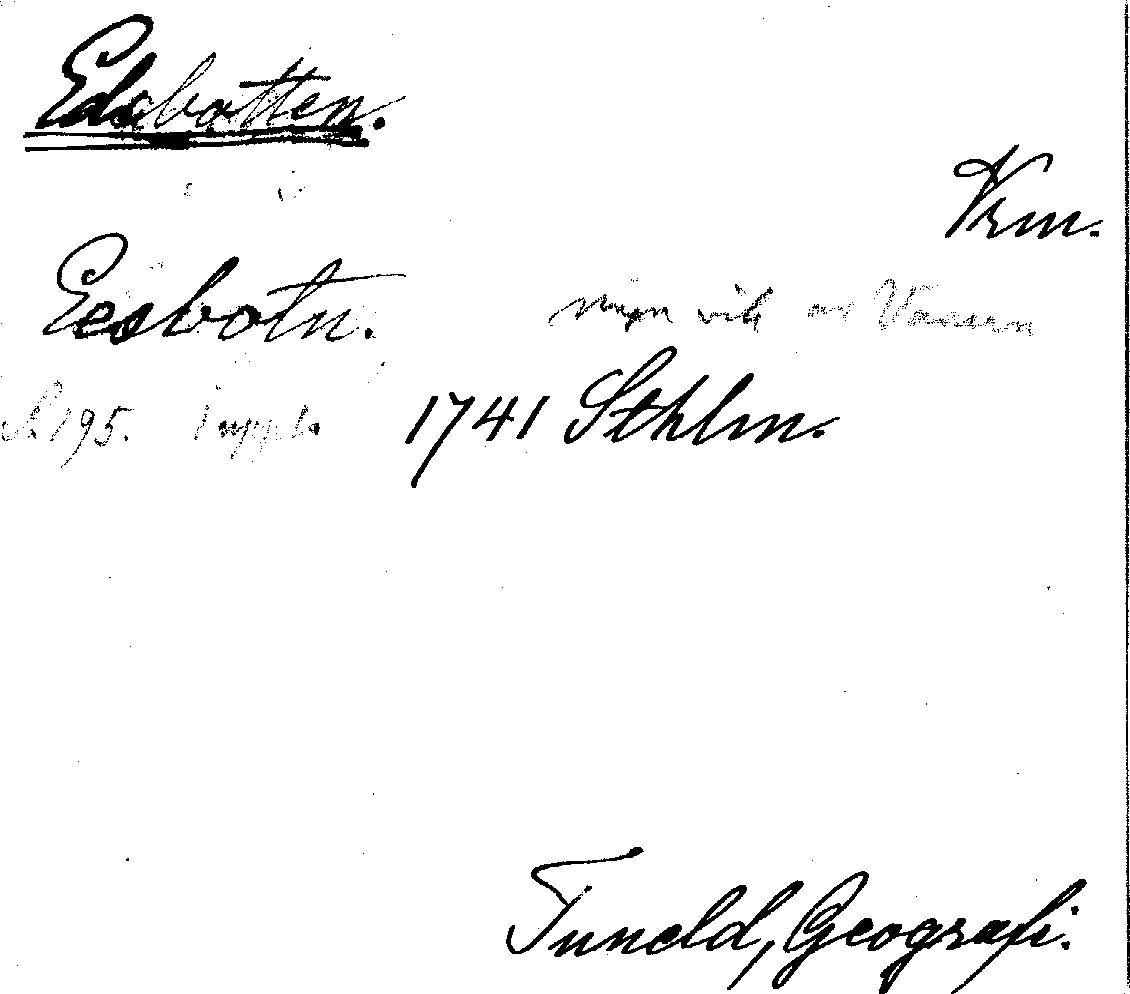 Edsbotten.
Vrm.
Eesbotn. vik av Vänern
S. 195. suppl. 1741 Sthlm.
Tuneld, Geografi.